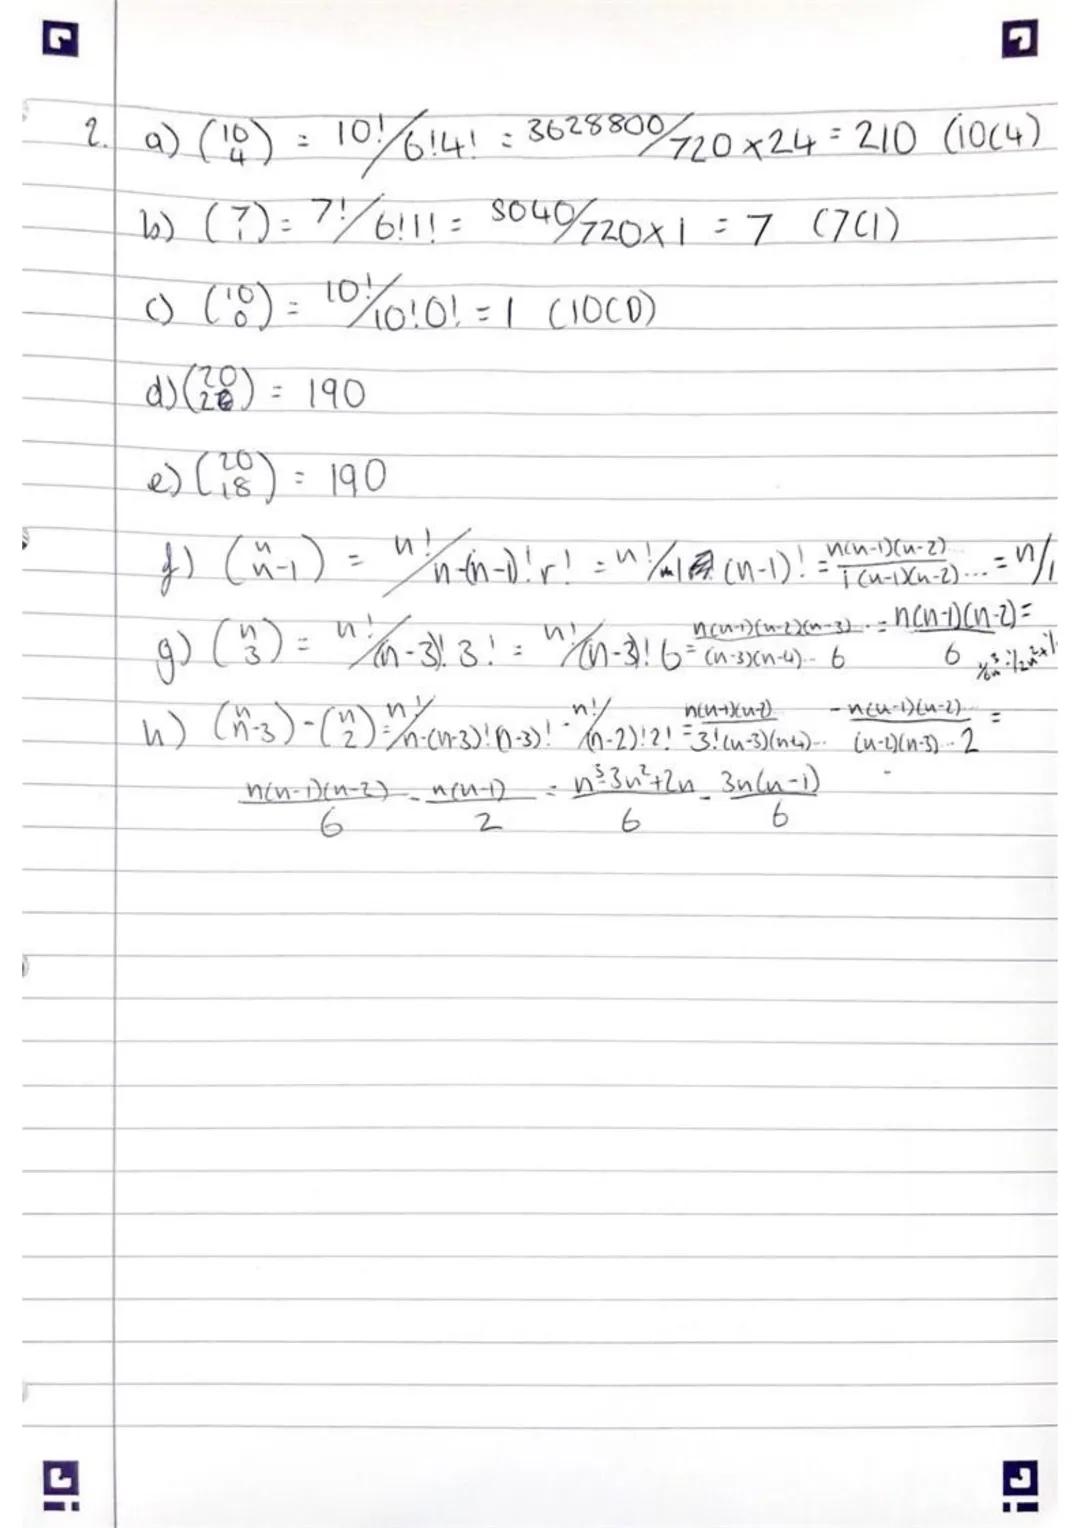 2. a) (10 4) = 10!/6!4! = 3628800/720×24 = 210 (10C4)
b) (7 1) = 7!/6!1! = 5040/720×1 = 7 (7C1)
c) (10 0) = 10!/10!0! = 1 (10C0)
d) (20 2) = 190
e) (20 18) = 190
f) (n n-1) = n!/n-(n-1)!r! = n!/1 (n-1)! = n(n-1)(n-2)../1(n-1)(n-2)... = n/1
g) (n 3) = n!/(n-3)!3! = n!/(n-3)!6 = n(n-1)(n-2)(n-3)../(n-3)(n-4).. 6 = n(n-1)(n-2)/6 =
h) (n n-3) - (n 2) = n!/n-(n-3)!(n-3)! - n!/(n-2)!2! = n(n-1)(n-2)/3!(n-3)(n-4).. - n(n-1)(n-2)../(n-2)(n-3)..2 =
n(n-1)(n-2)/6 - n(n-1)/2 = n³-3n²+2n/6 - 3n(n-1)/6